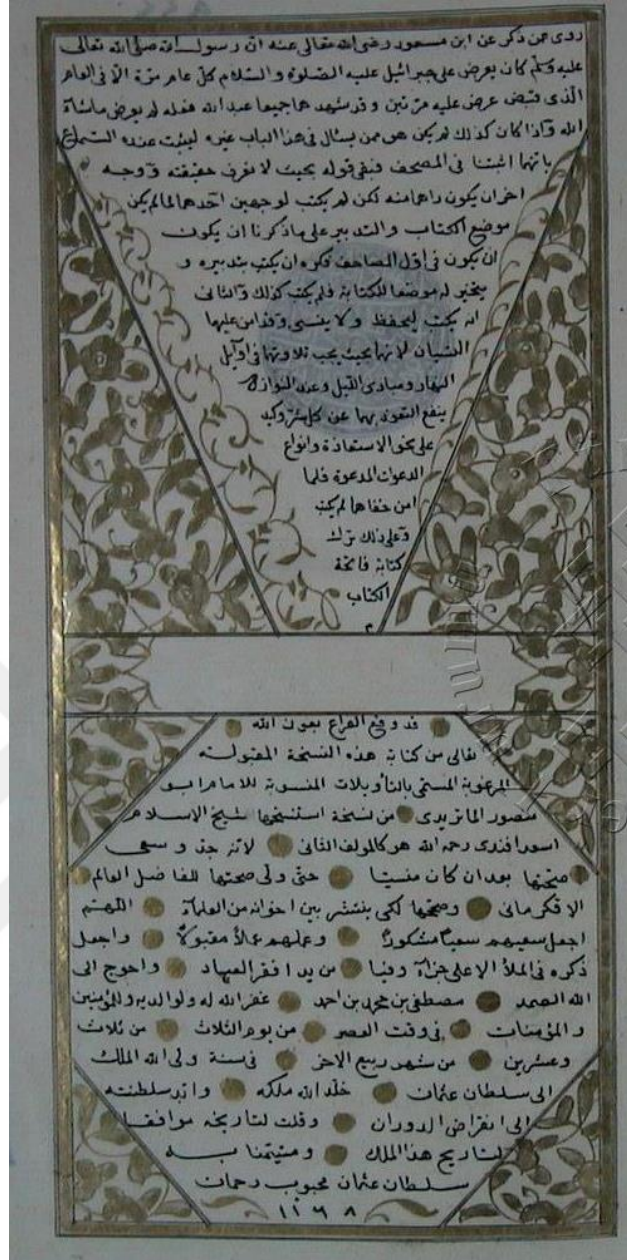 روى عمن ذكر عن ابن مسعود رضى الله تعالى عنه ان رسول الله صلى الله تعالى
عليه وسلم كان يعرض على جبرائيل عليه الصلوة والسلام كل عام مرة الا فى العام
الذى قبض عرض عليه مرتين وقد شهدهما جميعا عبد الله فعله لم يعرض ماشاء
الله واذا كان كذلك لم يكن هو ممن يسئال فى هذا الباب غيره ليثبت عنده السماع
بانهما اثبتا فى المصحف فبقى قوله بحيث لا نعرف حقيقته ووجه
اخر ان يكون راهما منه لكن لم يكتب لوجهين احدهما لما لم يكن
موضع الكتاب والتدبير على ما ذكرنا ان يكون
ان يكون فى اول المصاحف فكره ان يكتب بتدبيره و
يتخير له موضعا للكتابة فلم يكتب كذلك والثانى
انه يكتب ليحفظ ولا ينسى وقد امن عليها
النسيان لانها بحيث يجب تلاوتها فى اوائل
النهار ومبادى الليل وعند النوازل
ينفع التعوذ بهما عن كل شر وكيد
على نحو الاستعاذة وانواع
الدعوات المدعوة فلما
امن خفاهما لم يكتب
وعلى ذلك ترك
كتابة فاتحة
الكتاب
م
قد وقع الفراغ بعون الله
تعالى من كتابة هذه النسخة المقبولة
المرغوبة المسمى بالتأويلات المنسوبة للامام ابو
منصور الماتريدى من نسخة استنسخها شيخ الاسلام
اسعد افندى رحمه الله هو كالمولف الثانى لانه جد و سعى
صحتها بعد ان كان منسيا حتى ولى صحتها للفاضل العالم
الاقكرمانى وصحها لكى ينتشر بين اخوانه من العلماء اللهم
اجعل سعيهم سعيا مشكورا وعملهم عملا مقبولا واجعل
ذكره فى الملأ الاعلى جزاء وفيا من يد افقر العباد واحوج الى
الله الصمد مصطفى بن محمد بن احمد غفر الله له ولوالديه وللمؤمنين
والمؤمنات فى وقت العصر من يوم الثلاث من ثلاث
وعشرين من شهر ربيع الاخر فى سنة ولى الله الملك
الى سلطان عثمان خلد الله ملكه وابد سلطنته
الى انقراض الدوران وقلت لتاريخه موافقا
لتاريخ هذا الملك ومتيمنا به
سلطان عثمان محبوب رحمان
١١٦٨